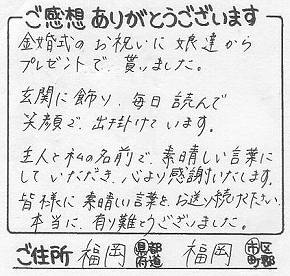 ご感想ありがとうございます
金婚式のお祝いに娘達から
プレゼントで、貰いました。
玄関に飾り、毎日読んで
笑顔で、出掛けています。
主人と私の名前で、素晴しい言葉に
していただき、心より感謝いたします。
皆様に素晴しい言葉を、お送り続け下さい。
本当に、有り難とうございました。
ご住所 福岡 県都府道 福岡 市区町郡